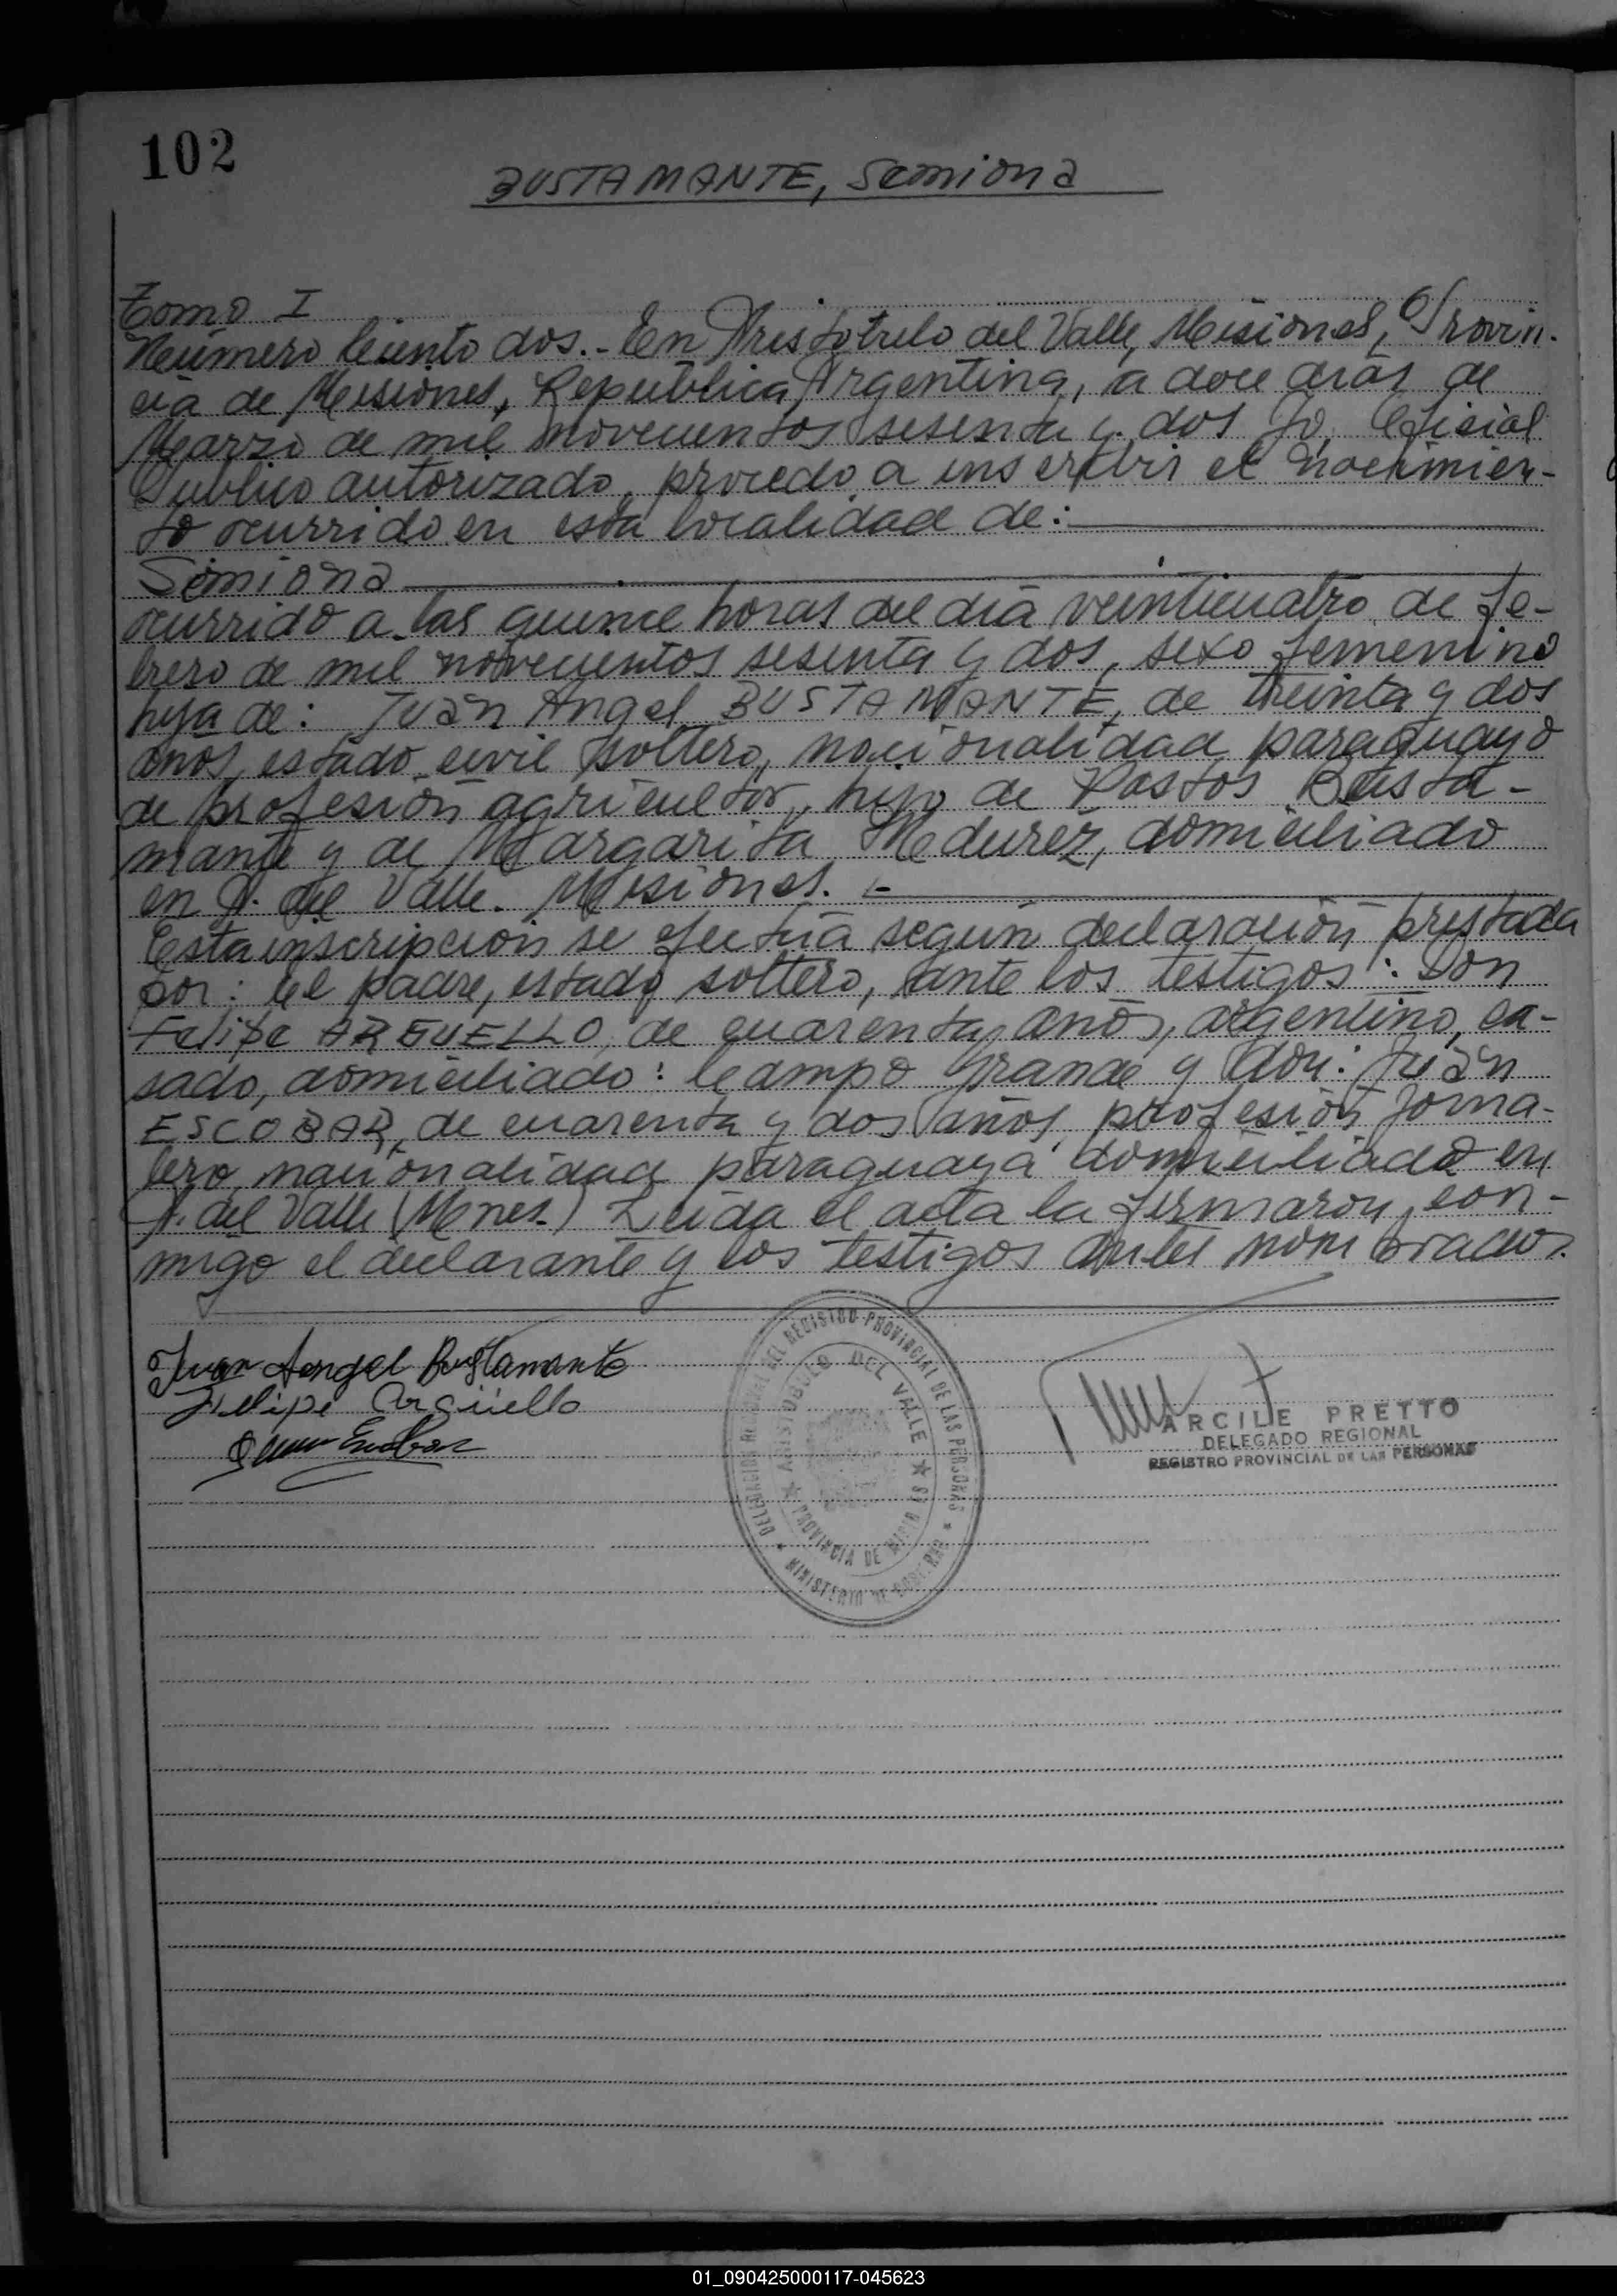 102
BUSTAMANTE, Semiona
Tomo I
Número Ciento dos.- En Aristotulo del Valle, Misiones, Provin-
cia de Misiones, República Argentina, a doce días de
Marzo de mil novecientos sesenta y dos Yo, Oficial
Publico autorizado, procedo a inscribir el nacimien-
to ocurrido en esta localidad de:
Simiona
ocurrido a las quince horas del día veinticuatro de fe-
brero de mil novecientos sesenta y dos, sexo femenino
hija de: Juan Angel BUSTAMANTE, de treinta y dos
años, estado civil soltero, nacionalidad paraguayo
de profesión agricultor, hijo de Pastos Busta-
mante y de Margarita Medurez, domiciliado
en A. del Valle. Misiones.-
Esta inscripción se efectúa según declaración prestada
por: El padre, estado soltero, ante los testigos: Don
Felipe ARGUELLO, de cuarenta años, argentino, ca-
sado, domiciliado: Campo Grande y don: Juan
ESCOBAR, de cuarenta y dos años, profesión jorna-
lero, nacionalidad paraguaya domiciliado en
A. del Valle (Mnes.) Leída el acta la firmaron con-
migo el declarante y los testigos antes nombrados.
Juan Aengel Bustamante
Felipe Argüello
Juan Escobar
DELEGACION REGIONAL DEL REGISTRO PROVINCIAL DE LAS PERSONAS
ARISTOBULO DEL VALLE
PROVINCIA DE MISIONES
MINISTERIO DE GOBIERNO
ARCILE PRETTO
DELEGADO REGIONAL
REGISTRO PROVINCIAL DE LAS PERSONAS
01_090425000117-045623